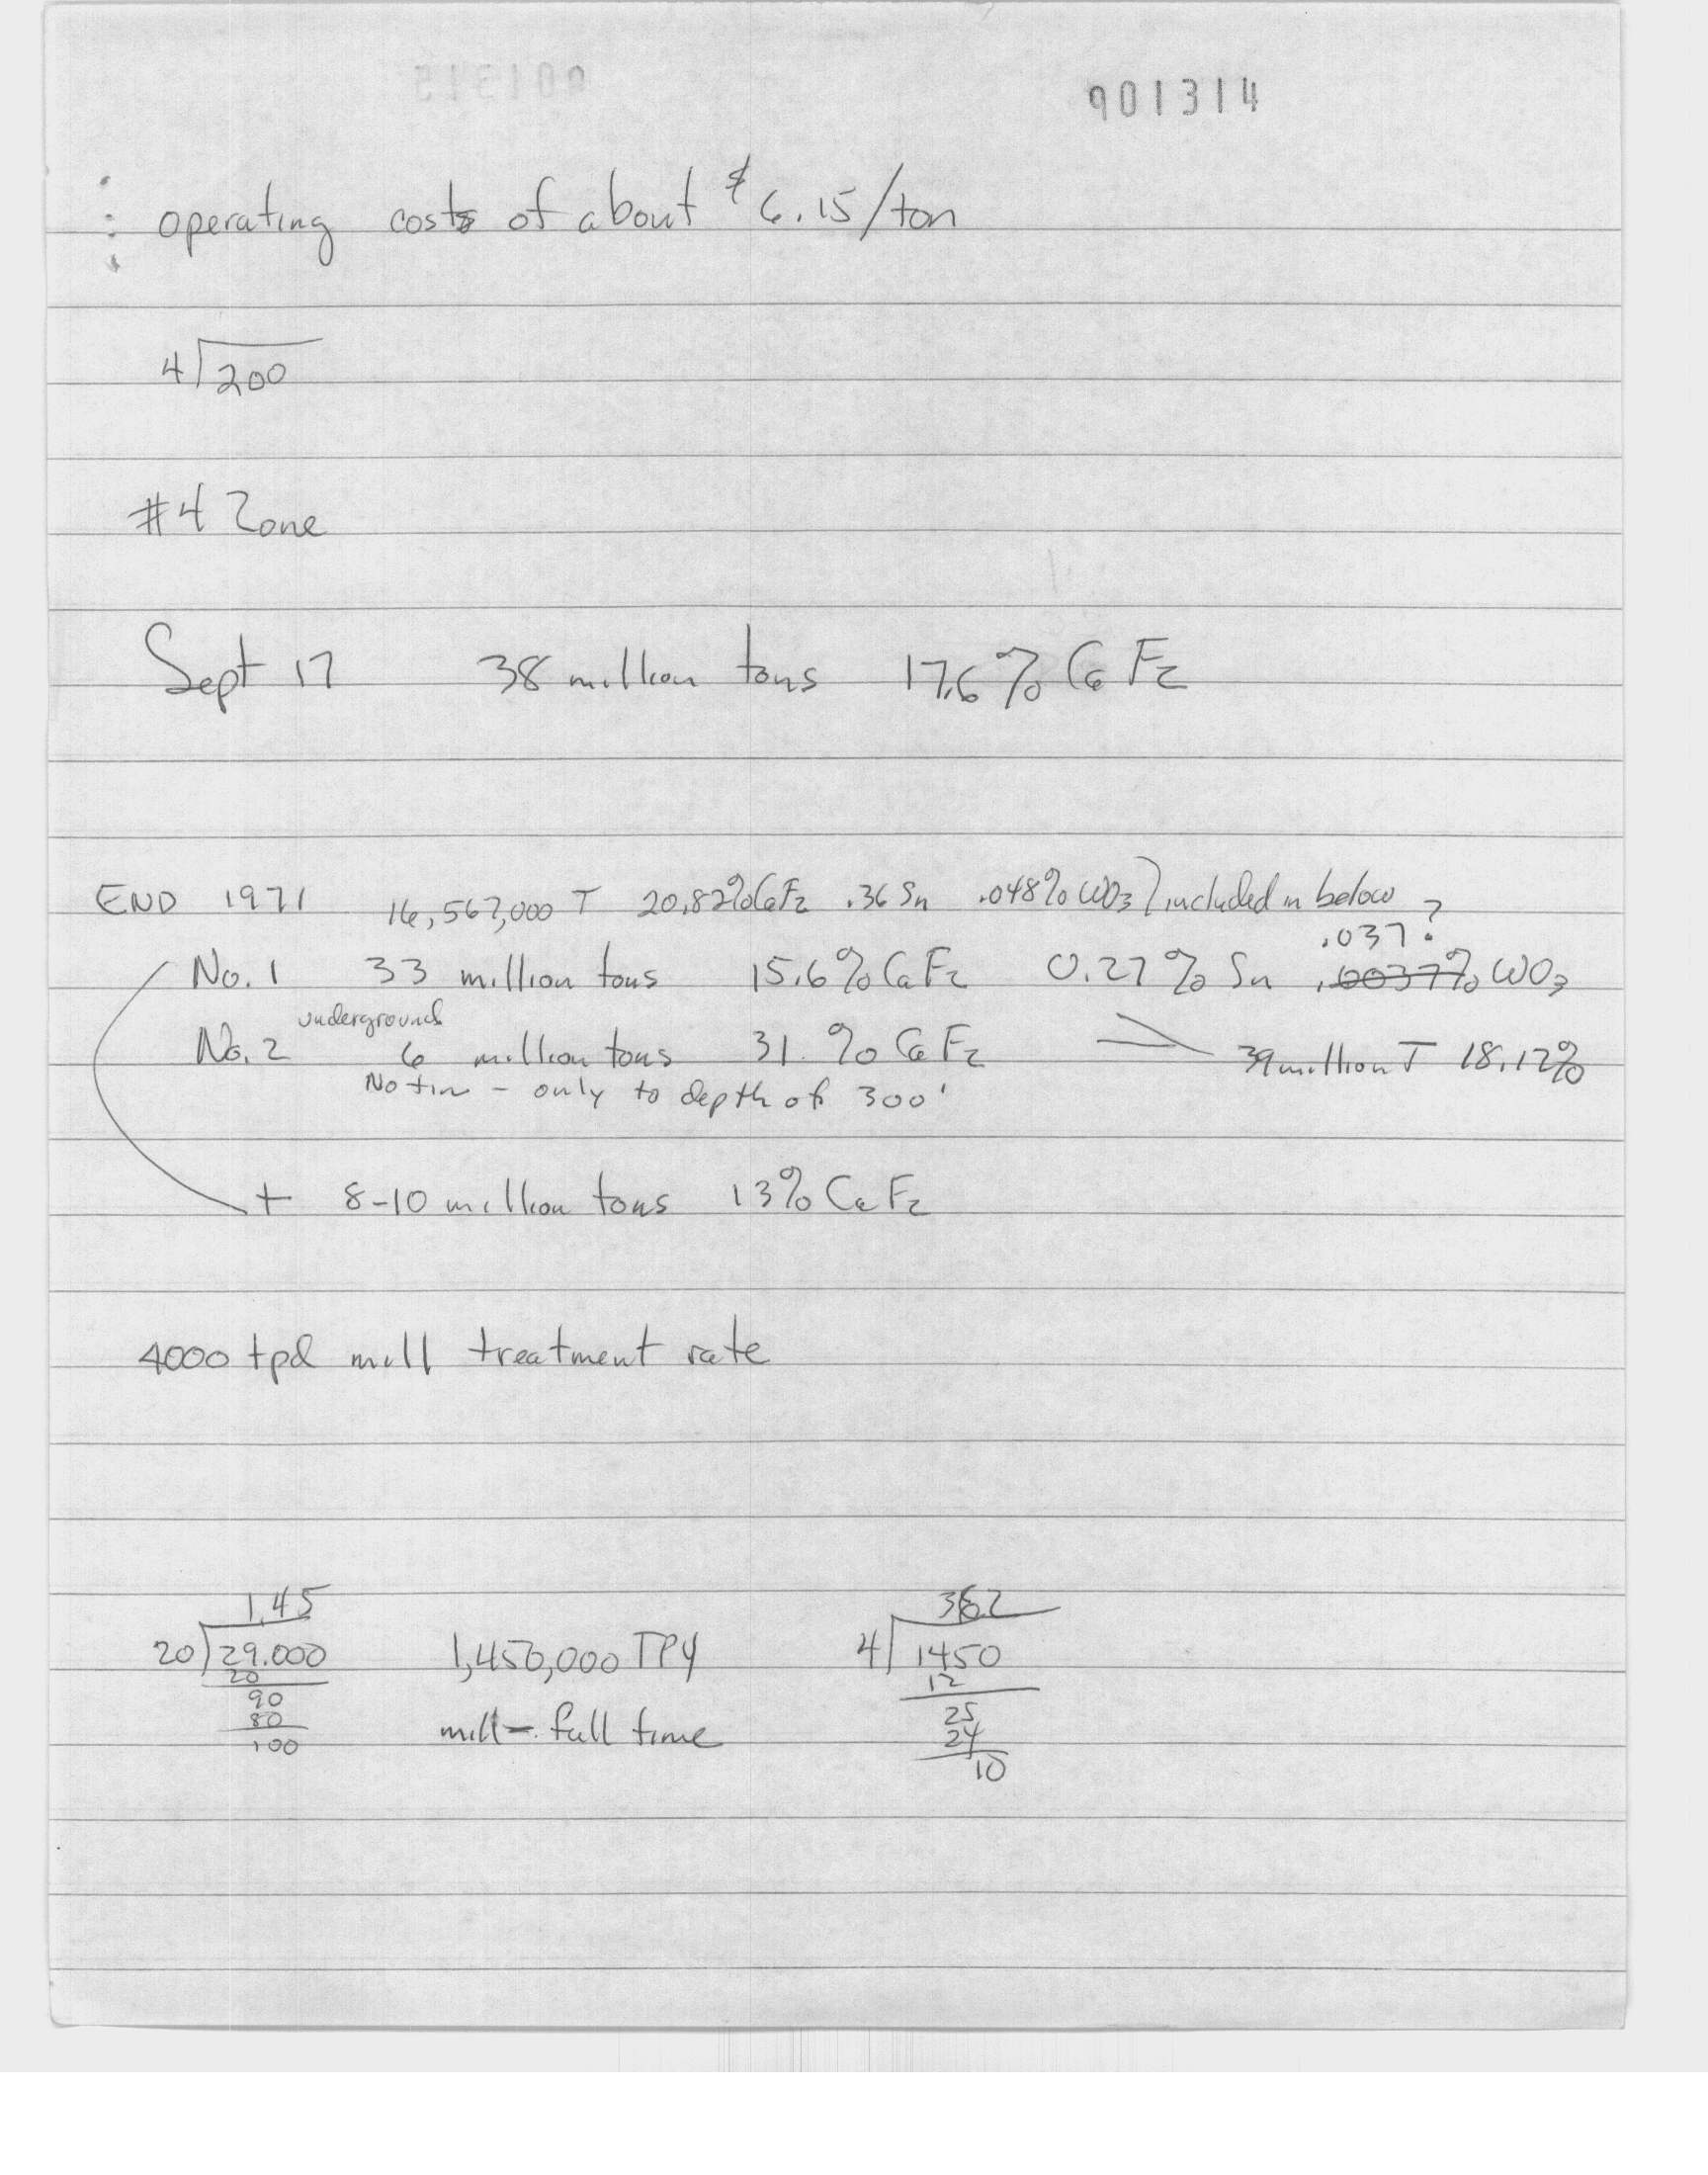 901315
901314
∴ operating costs of about $6.15/ton
4)200
#4 Zone
Sept 17 38 million tons 17.6% CaF2
END 1971 16,567,000 T 20.82% CaF2 .36 Sn .048% WO3) included in below
.037?
No. 1 33 million tons 15.6% CaF2 0.27% Sn .0037% WO3
underground
No. 2 6 million tons 31. % CaF2 39 million T 18.12%
No tin - only to depth of 300'
+ 8-10 million tons 13% CaF2
4000 tpd mill treatment rate
1.45 362
20)29.000 1,450,000 TPY 4)1450
20 12
90 25
80 mill - full time 24
100 10